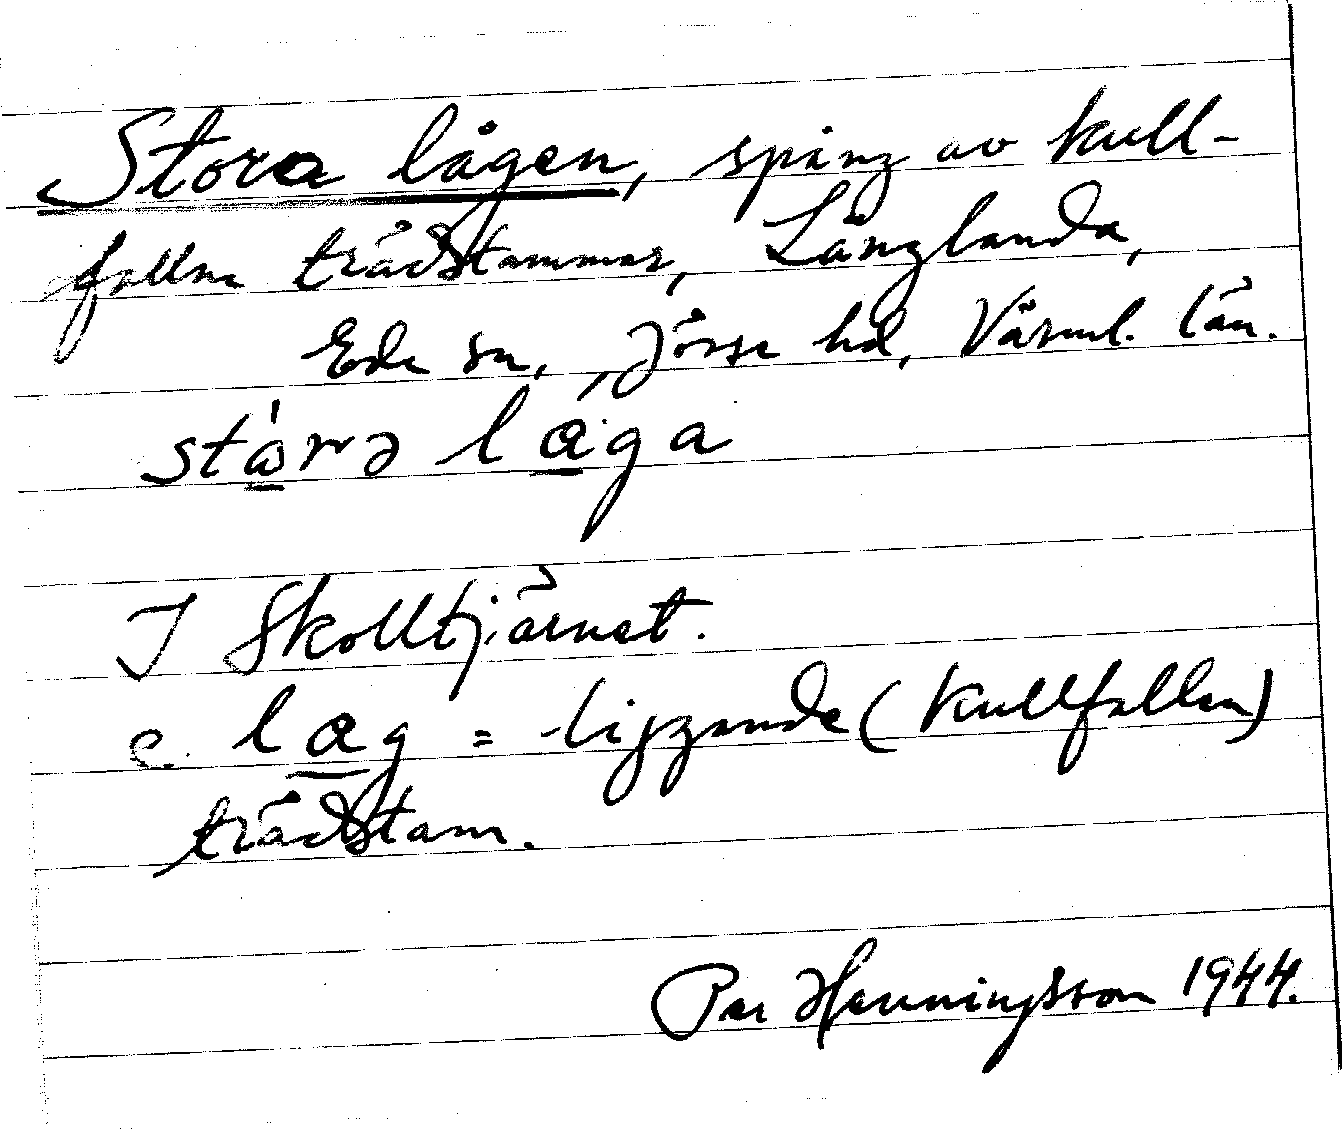 Stora lågen, spång av kull-
fallna trädstammar, Långlanda,
Eda sn, Jösse hd, Värml. län.
I Skolltjärnet.
= liggande (kullfallen)
trädstam.
Per Henningsson 1944.